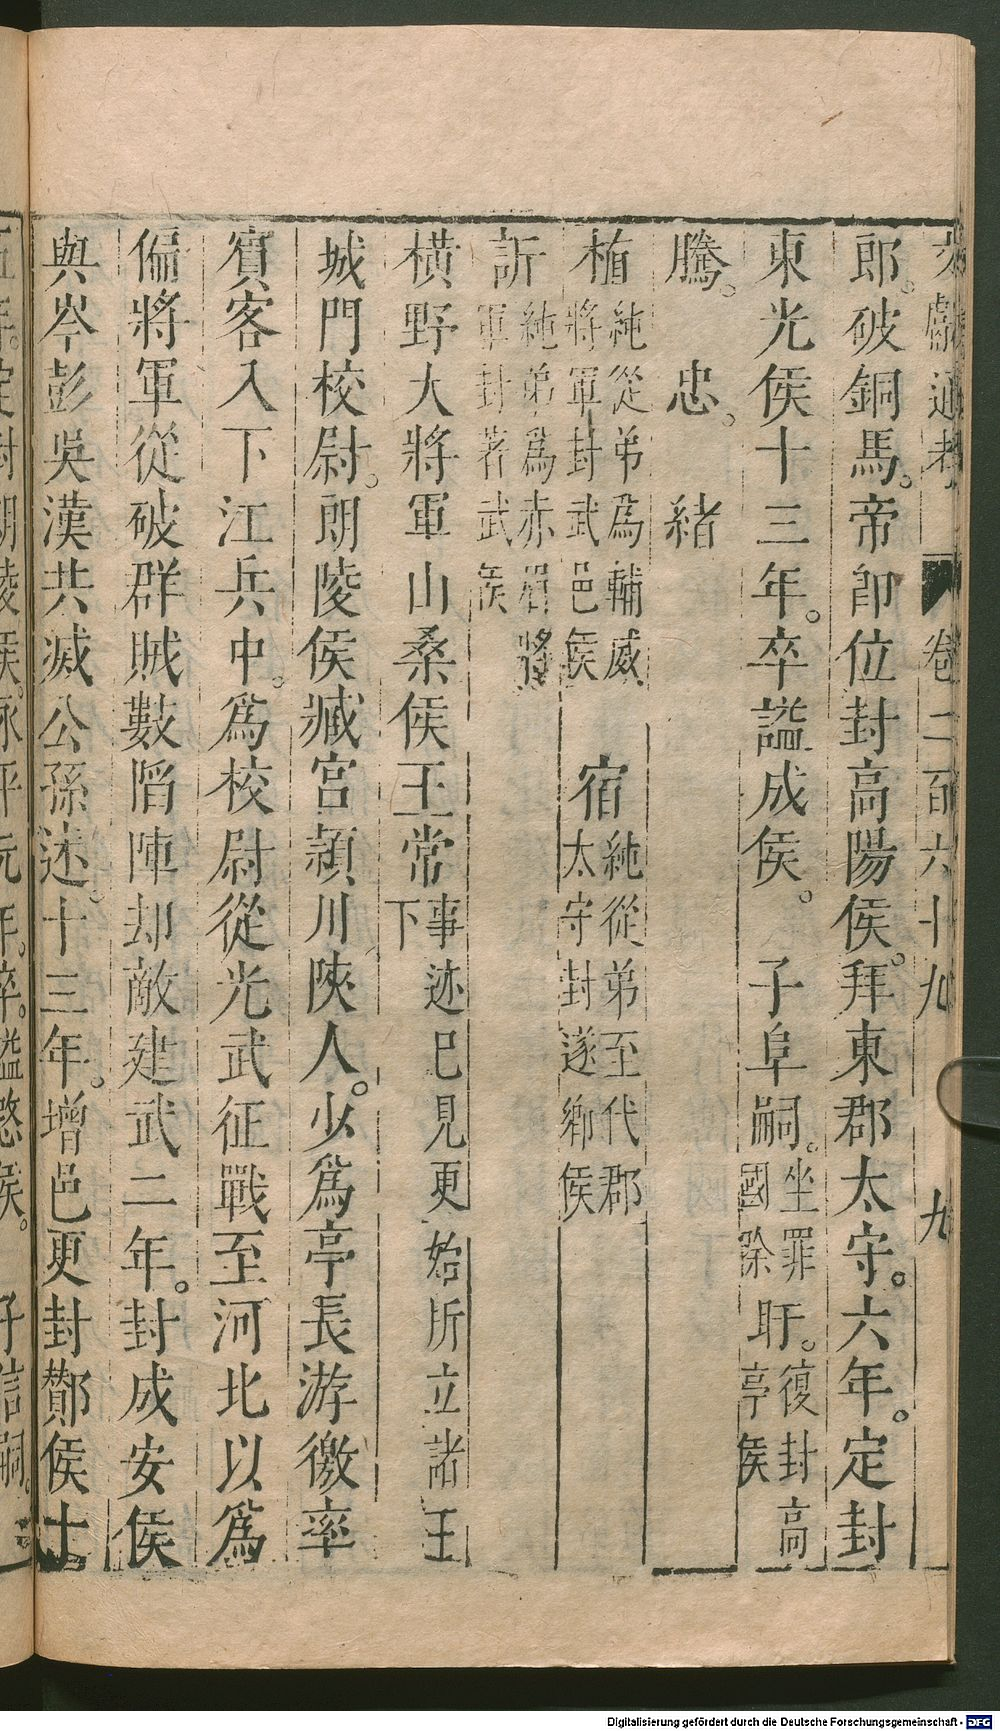 文獻通考 卷二百六十九 九
郎。破銅馬。帝卽位封高陽侯。拜東郡太守。六年。定封
東光侯十三年。卒謚成侯。 子阜嗣。坐罪國除 盱。復封高亭侯
騰。 忠。 緒
植 純從弟爲輔威將軍封武邑侯 宿 純從弟至代郡太守封遂鄉侯
訢 純弟爲赤眉將軍封著武侯
橫野大將軍山桑侯王常 事迹已見更始所立諸王下
城門校尉。朗陵侯臧宮潁川陜人。少爲亭長游徼率
賓客入下江兵中。爲校尉從光武征戰至河北以爲
偏將軍從破群賊數陷陣却敵建武二年。封成安侯
與岑彭吳漢共滅公孫述。十三年。增邑更封酇侯十
五年。定封朗陵侯。永平元年。卒。謚愍侯。 子信嗣。
Digitalisierung gefördert durch die Deutsche Forschungsgemeinschaft - DFG